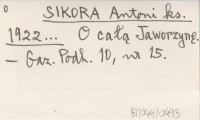 SIKORA Antoni ks.
1922... O całą Jaworzynę.
– Gaz. Podh. 10, nr 15.